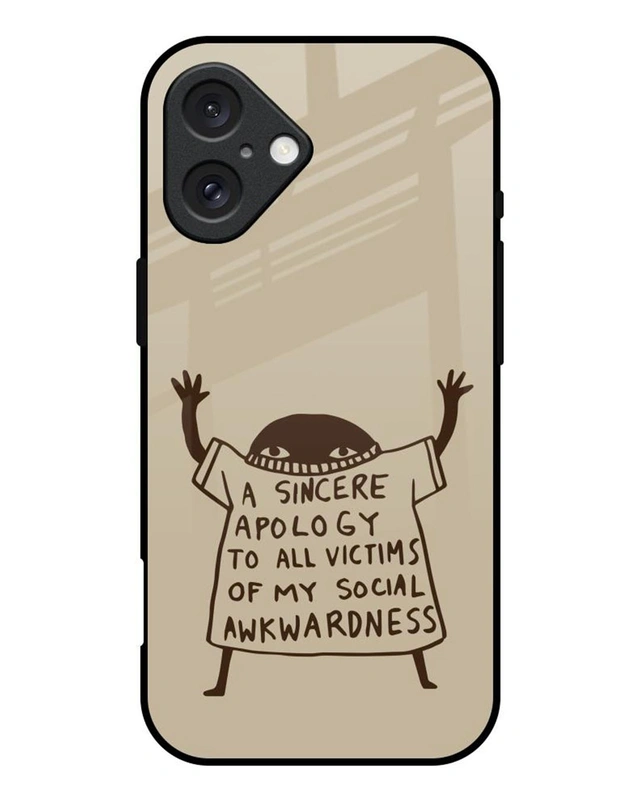 A SINCERE
APOLOGY
TO ALL VICTIMS
OF MY SOCIAL
AWKWARDNESS